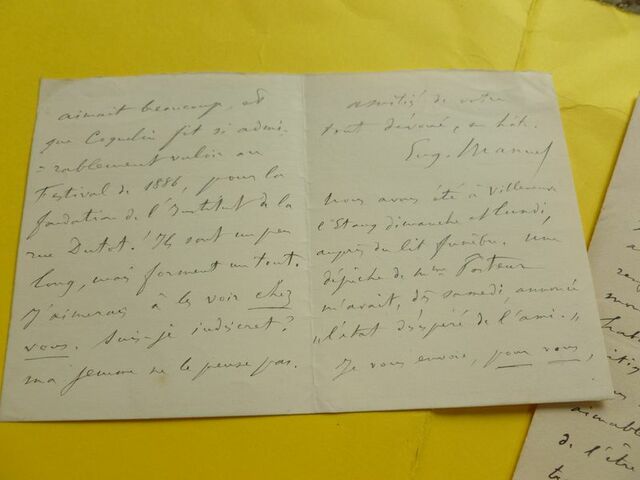 aimait beaucoup, et
que Coquelin fit si admi-
=rablement valoir au
Festival de 1886, pour la
fondation de l'Institut de la
rue Dutot! Ils sont un peu
long, mais forment un tout.
J'aimerais à les voir chez
vous. Suis-je indiscret?
ma femme ne le pense pas.
amitiés de votre
tout dévoué, en hâte.
Eug. Manuel
Nous avons été à Villeneuve
l'Etang dimanche et lundi,
auprès du lit funèbre. Une
dépêche de Mme Pasteur
m'avait, dès samedi, annoncé
"l'état désespéré de l'ami."
Je vous envoie, pour vous,
aimable
de l'être